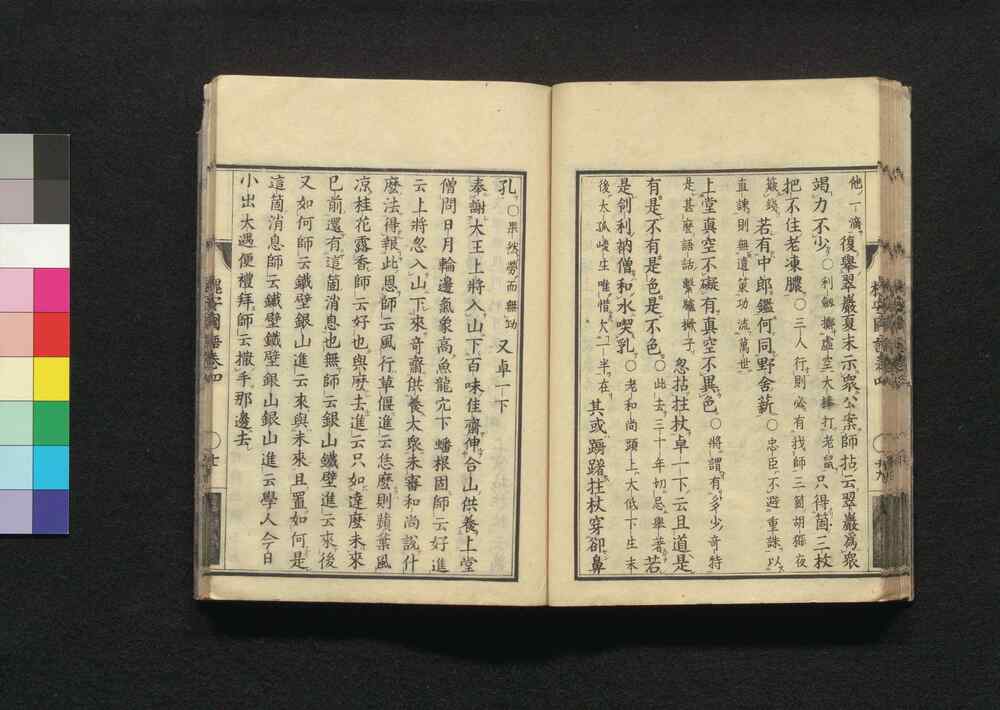 他一滴復舉翠巖夏末示衆公案師拈云翠巖爲衆
竭力不少○利劒擲虛空大棒打老鼠只得箇三杖
把不住老凍膿○三人行則必有找師三箇胡猻夜
簸錢若有中郎鑑何同野舍薪○忠臣不避重誅以
直諫則無遺策功流萬世
上堂真空不礙有真空不異色○將謂有多少奇特
是甚麼語話繫驢橛子忽拈拄杖卓一下云且道是
有是不有是色是不色○此去三十年切忌舉著若
是刢利衲僧和水喫乳○老和尚頭上太低下生末
後太孤峻生唯惜欠一半在其或躊躇拄杖穿卻鼻
孔○果然勞而無功又卓一下
奉謝大王上將入山下百味佳齋伸合山供養上堂
僧問日月輪邊氣象高魚龍宂下蟠根固師云好進
云上將忽入山下來奇齋供養大衆未審和尚說什
麼法得報此恩師云風行草偃進云恁麼則蘋葉風
凉桂花露香師云好也與麼去進云只如達麼未來
已前還有這箇消息也無師云銀山鐵壁進云來後
又如何師云鐵壁銀山進云來與未來且置如何是
這箇消息師云鐵壁鐵壁銀山銀山進云學人今日
小出大遇便禮拜師云撒手那邊去
國語卷四
○七